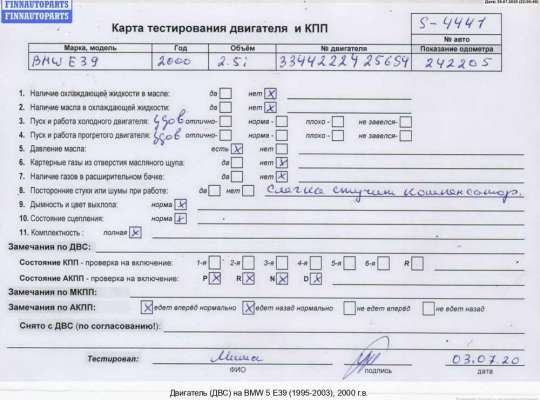 FINNAUTOPARTS
FINNAUTOPARTS
Карта тестирования двигателя и КПП
S-4441
№ авто
Марка, модель Год Объём № двигателя Показание одометра
BMW E39 2000 2.5i 33442224256S4 242205
1. Наличие охлаждающей жидкости в масле: да нет X
2. Наличие масла в охлаждающей жидкости: да нет X
3. Пуск и работа холодного двигателя: удов отлично- норма - плохо - не завелся-
4. Пуск и работа прогретого двигателя: удов отлично- норма - плохо - не завелся-
5. Давление масла: есть X нет
6. Картерные газы из отверстия масляного щупа: да нет X
7. Наличие газов в расширительном бачке: да нет X
8. Посторонние стуки или шумы при работе: да нет Слегка стучит компенсатор.
9. Дымность и цвет выхлопа: норма X
10. Состояние сцепления: норма X
11. Комплектность : полная X
Замечания по ДВС:
Состояние КПП - проверка на включение: 1-я 2-я 3-я 4-я 5-я 6-я R
Состояние АКПП - проверка на включение: P X R X N X D X
Замечания по МКПП:
Замечания по АКПП: X едет вперёд нормально X едет назад нормально не едет вперёд не едет назад
Снято с ДВС (по согласованию!):
Тестировал: Миша 03.07.20
ФИО подпись дата
Двигатель (ДВС) на BMW 5 E39 (1995-2003), 2000 г.в.